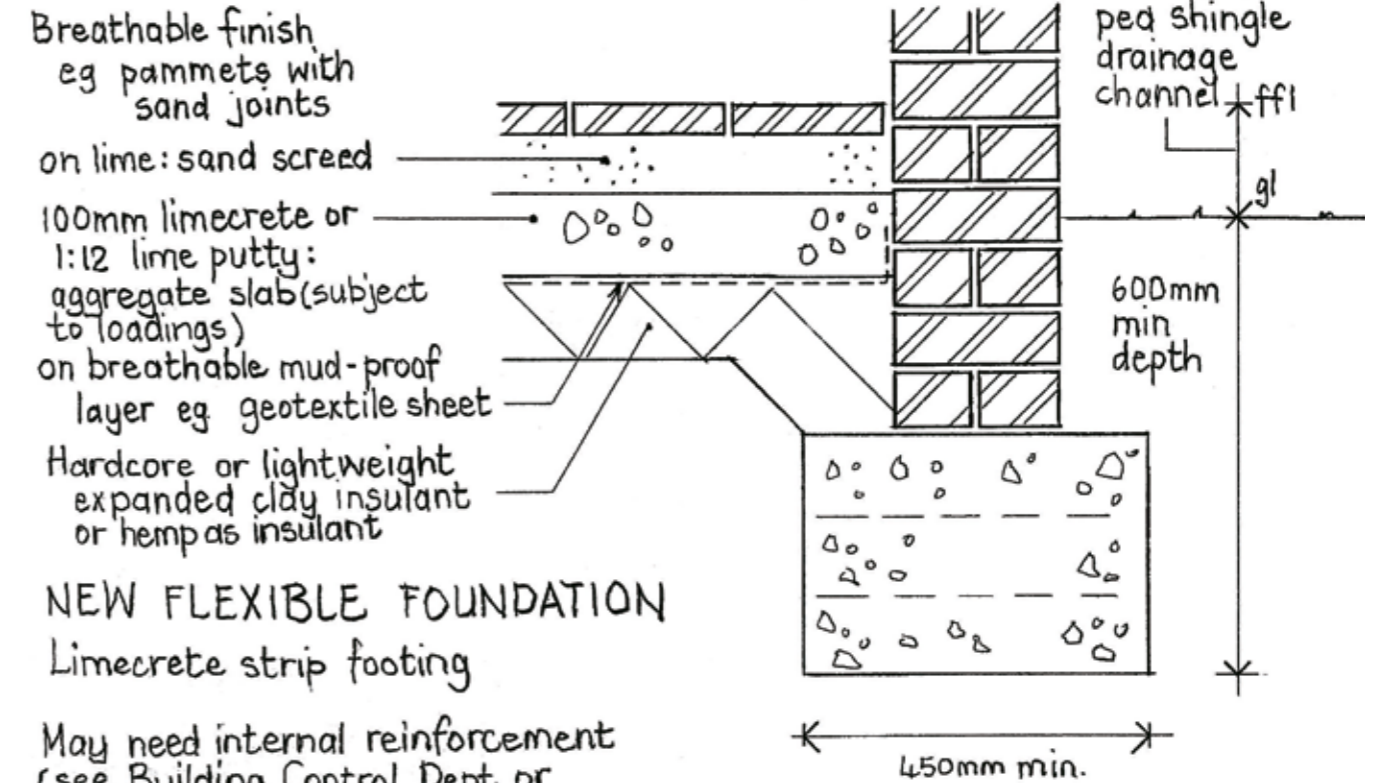 Breathable finish
eg pammets with
sand joints
on lime: sand screed
100mm limecrete or
1:12 lime putty:
aggregate slab (subject
to loadings)
on breathable mud-proof
layer eg geotextile sheet
Hardcore or lightweight
expanded clay insulant
or hemp as insulant
NEW FLEXIBLE FOUNDATION
Limecrete strip footing
May need internal reinforcement
(see Building Control Dept or
pea shingle
drainage
channel
ffl
gl
600mm
min
depth
450mm min.